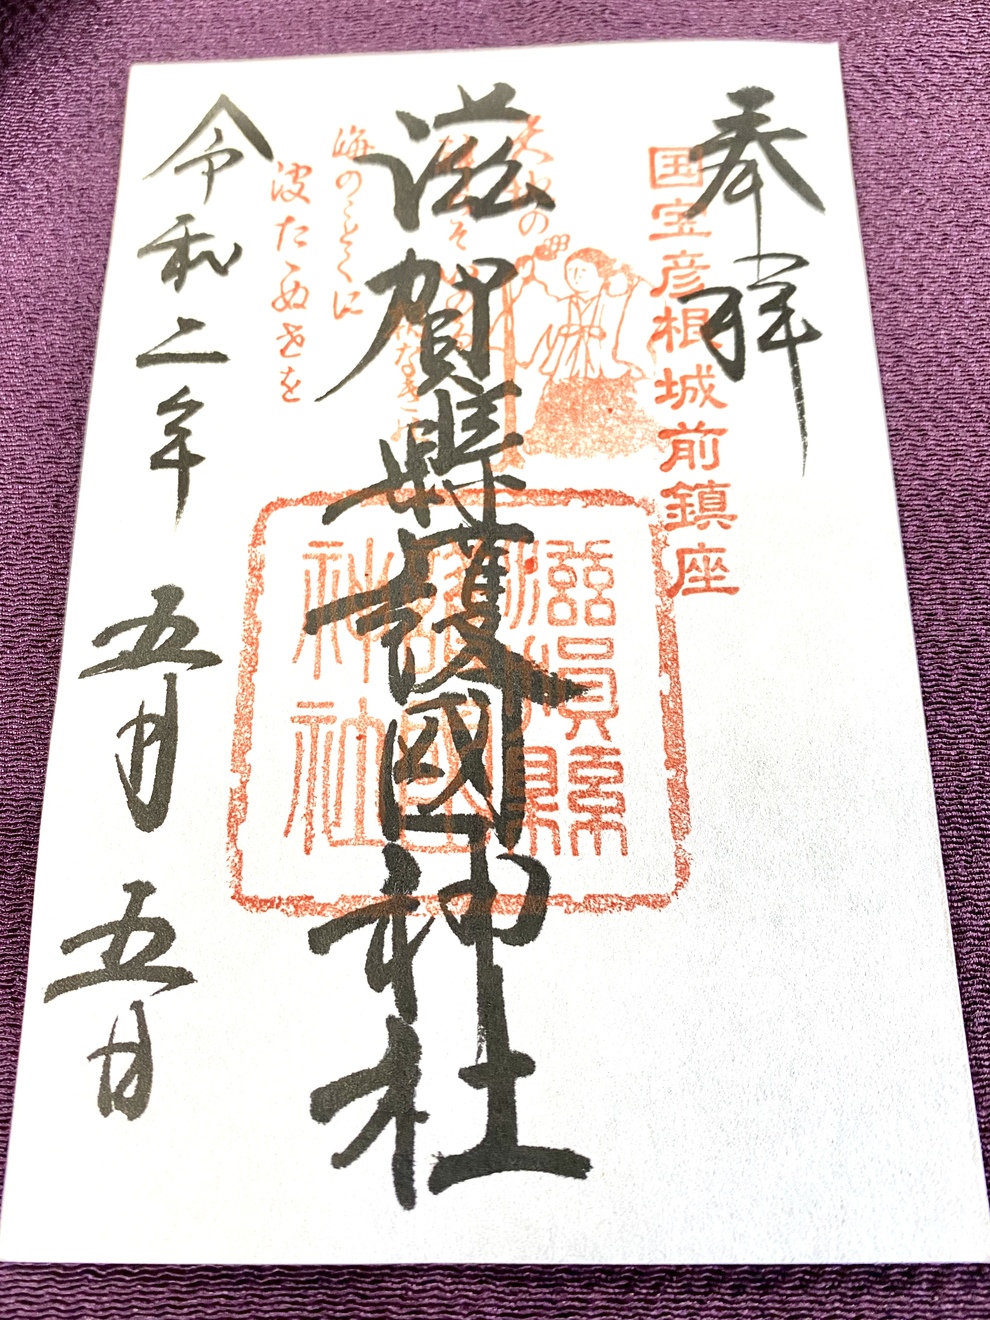 奉拝
国宝彦根城前鎮座
海のことくに
波たゝぬ世を
滋賀縣護國神社
滋賀縣
護國
神社
令和二年 五月 五日